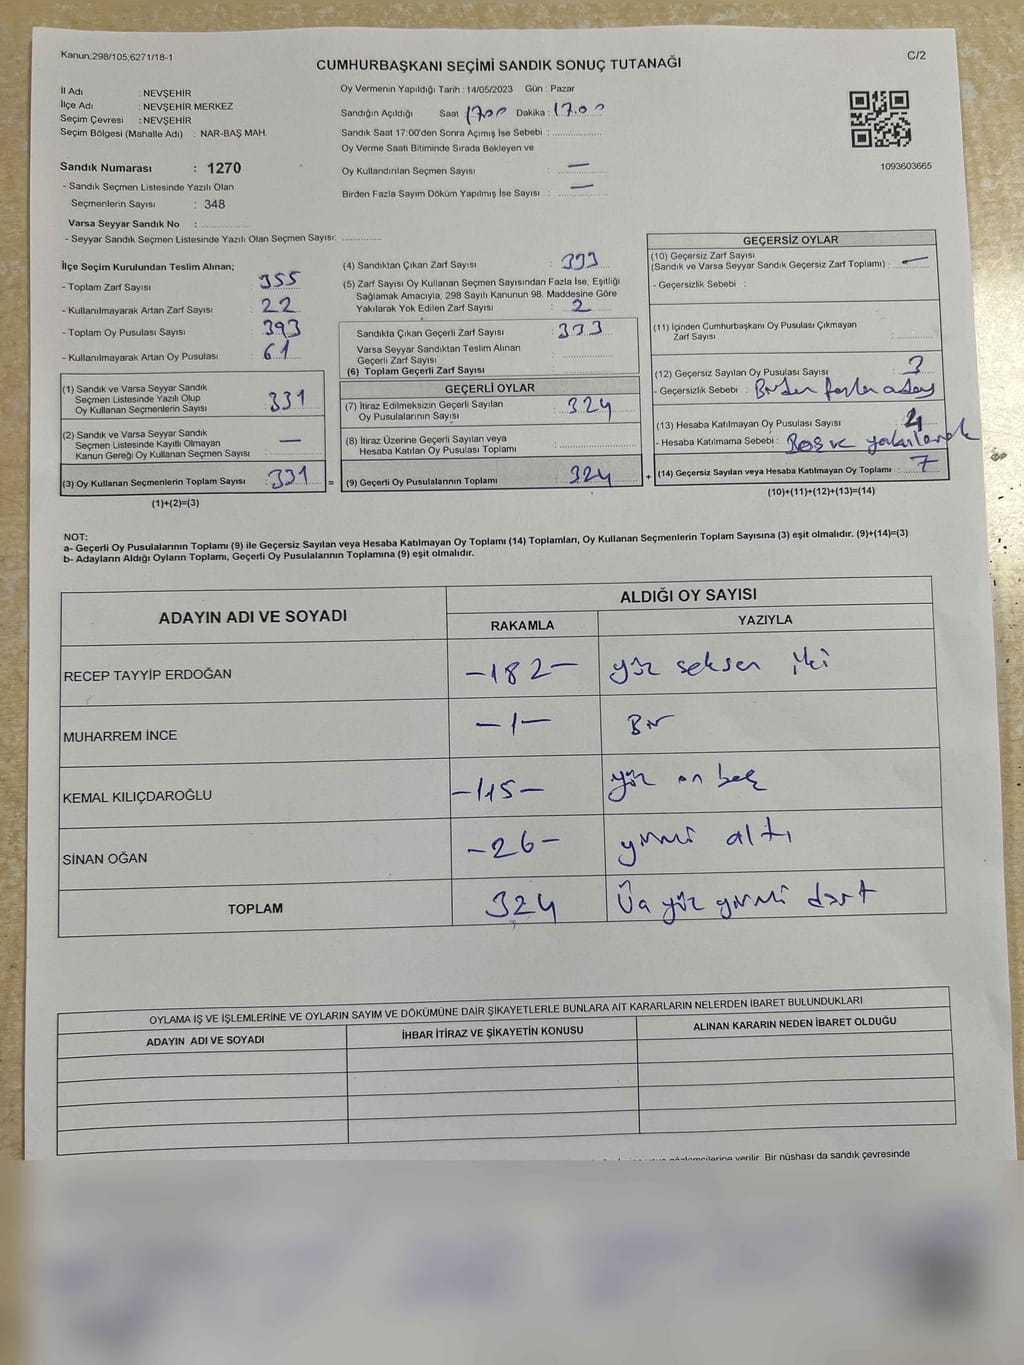 Kanun;298/105;6271/18-1
C/2
CUMHURBAŞKANI SEÇİMİ SANDIK SONUÇ TUTANAĞI
İl Adı : NEVŞEHİR
İlçe Adı : NEVŞEHİR MERKEZ
Seçim Çevresi : NEVŞEHİR
Seçim Bölgesi (Mahalle Adı) : NAR-BAŞ MAH.
Sandık Numarası : 1270
- Sandık Seçmen Listesinde Yazılı Olan
Seçmenlerin Sayısı : 348
Varsa Seyyar Sandık No :
- Seyyar Sandık Seçmen Listesinde Yazılı Olan Seçmen Sayısı:
Oy Vermenin Yapıldığı Tarih : 14/05/2023 Gün : Pazar
Sandığın Açıldığı Saat 1700 Dakika : 17.00
Sandık Saat 17:00'den Sonra Açımış İse Sebebi :
Oy Verme Saati Bitiminde Sırada Bekleyen ve
Oy Kullandırılan Seçmen Sayısı : —
Birden Fazla Sayım Döküm Yapılmış İse Sayısı : —
1093603665
İlçe Seçim Kurulundan Teslim Alınan;
- Toplam Zarf Sayısı : 355
- Kullanılmayarak Artan Zarf Sayısı : 22
- Toplam Oy Pusulası Sayısı : 393
- Kullanılmayarak Artan Oy Pusulası : 61
(1) Sandık ve Varsa Seyyar Sandık
Seçmen Listesinde Yazılı Olup
Oy Kullanan Seçmenlerin Sayısı : 331
(2) Sandık ve Varsa Seyyar Sandık
Seçmen Listesinde Kayıtlı Olmayan
Kanun Gereği Oy Kullanan Seçmen Sayısı : —
(3) Oy Kullanan Seçmenlerin Toplam Sayısı : 331 =
(1)+(2)=(3)
(4) Sandıktan Çıkan Zarf Sayısı : 333
(5) Zarf Sayısı Oy Kullanan Seçmen Sayısından Fazla İse, Eşitliği
Sağlamak Amacıyla, 298 Sayılı Kanunun 98. Maddesine Göre
Yakılarak Yok Edilen Zarf Sayısı : 2
Sandıkta Çıkan Geçerli Zarf Sayısı : 333
Varsa Seyyar Sandıktan Teslim Alınan
Geçerli Zarf Sayısı :
(6) Toplam Geçerli Zarf Sayısı :
GEÇERLİ OYLAR
(7) İtiraz Edilmeksizin Geçerli Sayılan
Oy Pusulalarının Sayısı : 324
(8) İtiraz Üzerine Geçerli Sayılan veya
Hesaba Katılan Oy Pusulası Toplamı :
(9) Geçerli Oy Pusulalarının Toplamı : 324 +
GEÇERSİZ OYLAR
(10) Geçersiz Zarf Sayısı
(Sandık ve Varsa Seyyar Sandık Geçersiz Zarf Toplamı) : —
- Geçersizlik Sebebi :
(11) İçinden Cumhurbaşkanı Oy Pusulası Çıkmayan
Zarf Sayısı :
(12) Geçersiz Sayılan Oy Pusulası Sayısı : 3
- Geçersizlik Sebebi : Birden fazla aday
(13) Hesaba Katılmayan Oy Pusulası Sayısı : 4
- Hesaba Katılmama Sebebi : Boş ve yakılarak
(14) Geçersiz Sayılan veya Hesaba Katılmayan Oy Toplamı : 7
(10)+(11)+(12)+(13)=(14)
NOT:
a- Geçerli Oy Pusulalarının Toplamı (9) ile Geçersiz Sayılan veya Hesaba Katılmayan Oy Toplamı (14) Toplamları, Oy Kullanan Seçmenlerin Toplam Sayısına (3) eşit olmalıdır. (9)+(14)=(3)
b- Adayların Aldığı Oyların Toplamı, Geçerli Oy Pusulalarının Toplamına (9) eşit olmalıdır.
ADAYIN ADI VE SOYADI
ALDIĞI OY SAYISI
RAKAMLA YAZIYLA
RECEP TAYYİP ERDOĞAN -182- yüz seksen iki
MUHARREM İNCE -1- Bir
KEMAL KILIÇDAROĞLU -115- yüz on beş
SİNAN OĞAN -26- yirmi altı
TOPLAM 324 Üç yüz yirmi dört
OYLAMA İŞ VE İŞLEMLERİNE VE OYLARIN SAYIM VE DÖKÜMÜNE DAİR ŞİKAYETLERLE BUNLARA AİT KARARLARIN NELERDEN İBARET BULUNDUKLARI
ADAYIN ADI VE SOYADI İHBAR İTİRAZ VE ŞİKAYETİN KONUSU ALINAN KARARIN NEDEN İBARET OLDUĞU
verilir. Bir nüshası da sandık çevresinde